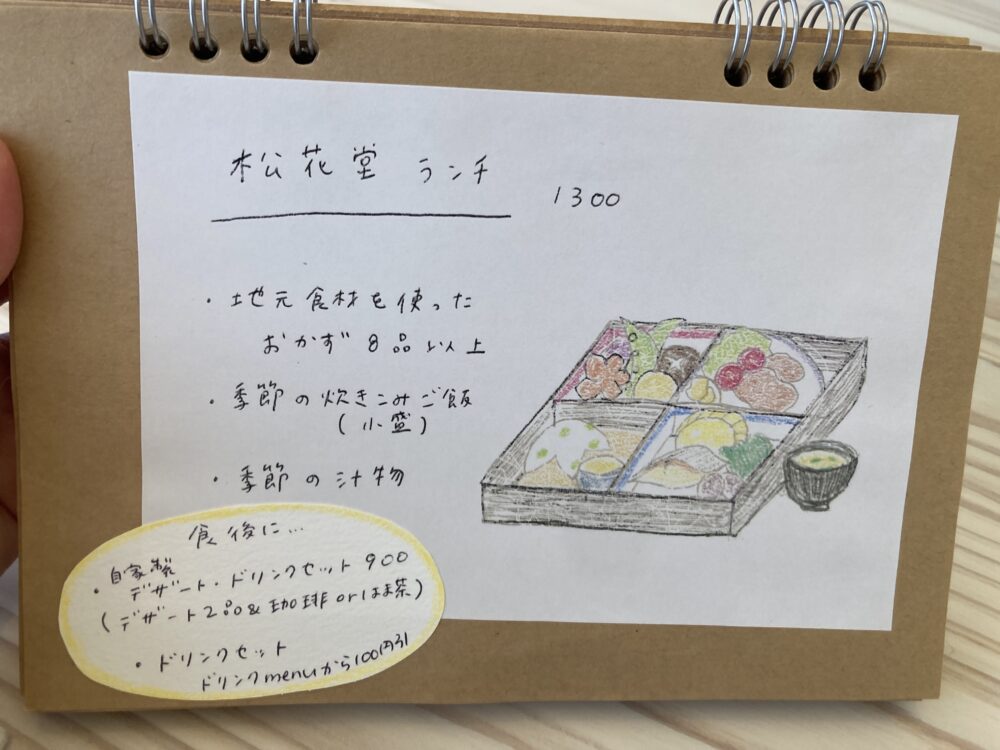 松花堂 ランチ 1300
・地元食材を使った
おかず8品以上
・季節の炊きこみご飯
(小盛)
・季節の汁物
食後に…
・自家製
デザート・ドリンクセット 900
(デザート2品&珈琲orはま茶)
・ドリンクセット
ドリンクmenuから100円引